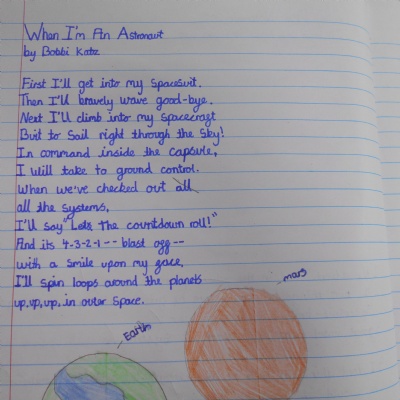 When I'm An Astronaut
by Bobbi Katz
First I'll get into my spacesuit.
Then I'll bravely wave good-bye.
Next I'll climb into my spacecragt
Buit to sail right through the sky!
In command inside the capsule,
I will take to ground control.
when we've checked out all
all the systems,
I'll say "Lets the countdown roll!"
And its 4-3-2-1-- blast ogg --
with a smile upon my gace,
I'll spin loops around the planets
up, up, up, in outer space.
mars
Earth